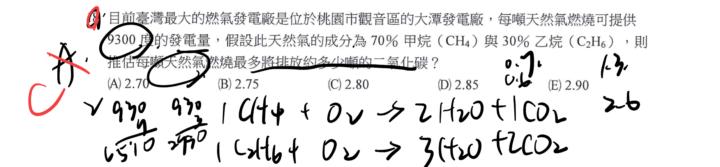 目前臺灣最大的燃氣發電廠是位於桃園市觀音區的大潭發電廠，每噸天然氣燃燒可提供
9300 度的發電量，假設此天然氣的成分為 70% 甲烷（CH₄）與 30% 乙烷（C₂H₆），則
推估每噸天然氣燃燒最多將排放約多少噸的二氧化碳？
(A) 2.70 (B) 2.75 (C) 2.80 (D) 2.85 (E) 2.90
930 930 1CH4 + O2 → 2H2O + 1CO2 26
6510 2790 1C2H6 + O2 → 3H2O + 2CO2